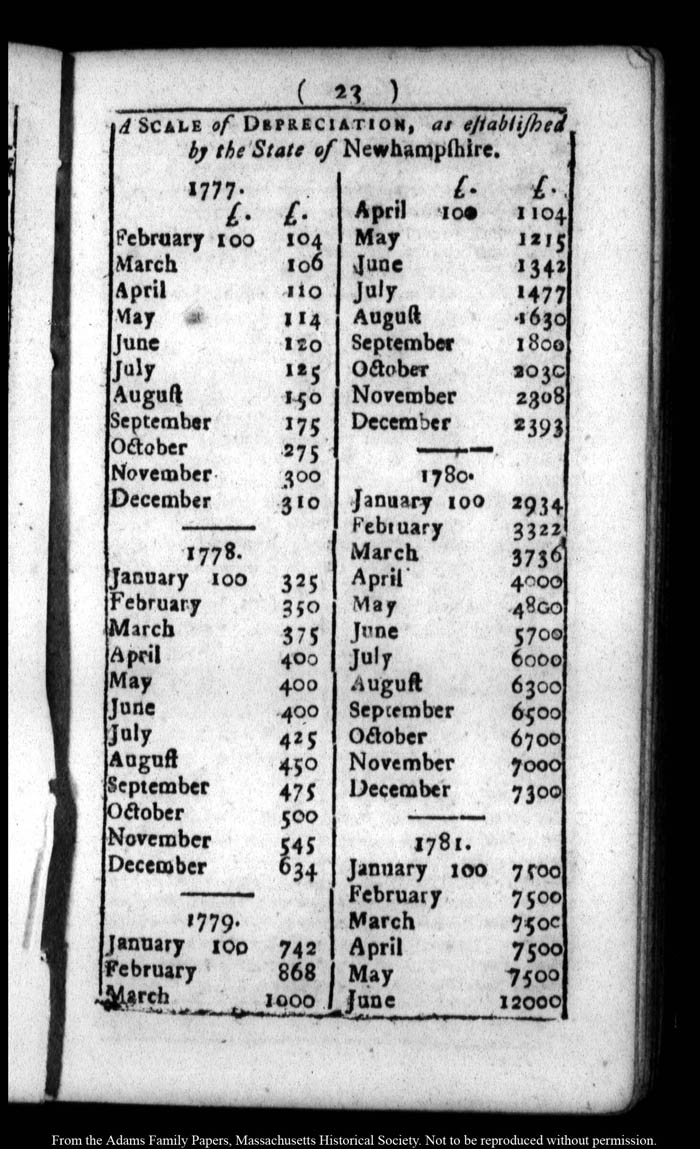 ( 23 )
A SCALE of DEPRECIATION, as eſtabliſhed
by the State of Newhampſhire.
1777.
£. £.
February 100 104
March 106
April 110
May 114
June 120
July 125
Auguſt 150
September 175
October 275
November 300
December 310
1778.
January 100 325
February 350
March 375
April 400
May 400
June 400
July 425
Auguſt 450
September 475
October 500
November 545
December 634
1779.
January 100 742
February 868
March 1000
£. £.
April 100 1104
May 1215
June 1342
July 1477
Auguſt 1630
September 1800
October 2030
November 2308
December 2393
1780.
January 100 2934
February 3322
March 3736
April 4000
May 4800
June 5700
July 6000
Auguſt 6300
September 6500
October 6700
November 7000
December 7300
1781.
January 100 7500
February 7500
March 7500
April 7500
May 7500
June 12000
From the Adams Family Papers, Massachusetts Historical Society. Not to be reproduced without permission.